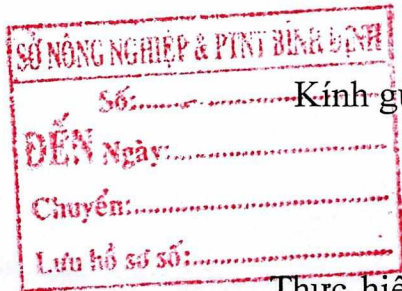 SỞ NÔNG NGHIỆP & PTNT BÌNH ĐỊNH
Số:.......................Kính gử
ĐẾN Ngày:..............................
Chuyển:....................................
Lưu hồ sơ số:..........................
Thực hiện